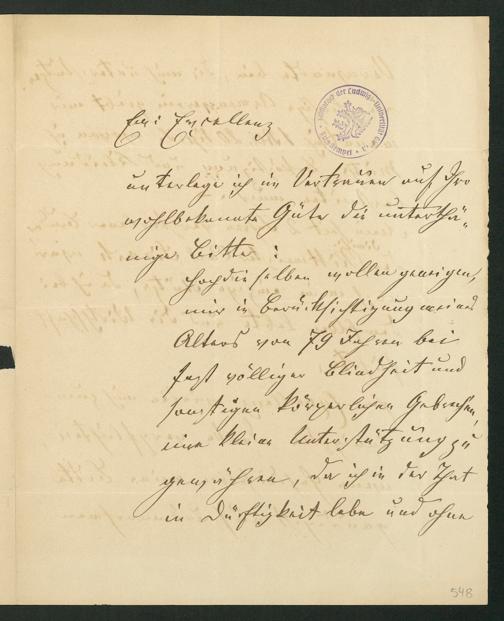 Eur: Excellenz
unterlege ich im Vertrauen auf Ihre
wohlbekannte Güte die unterthä-
nige Bitte:
Hochdieselben wollen geneigen,
mir in Berücksichtigung meines
Alters von 79 Jahren bei
fast völliger Blindheit und
sonstigen körperlichen Gebrechen,
eine kleine Unterstützung zu
gewähren, da ich in der That
in Dürftigkeit lebe und ohne
548